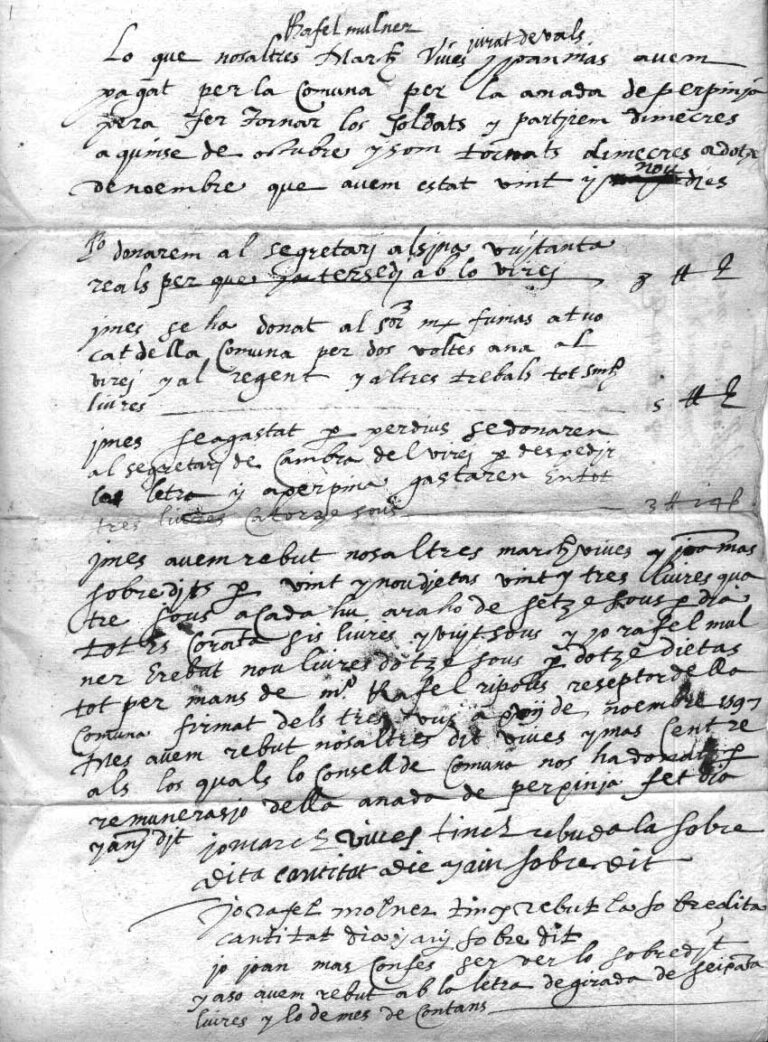 Rafel mulner
Lo que nosaltres March Vives jurat de vals y joan mas avem
pagat per la Comuna per la anada de perpinja
pera fer tornar los soldats y partirem dimecres
a quinse de octubre y som tornats dimecres a dotze
de noembre que avem estat vint y nou dies
Po donarem al segretari alsina vuytanta
reals per que ab lo virei 3 ₶
jmes se ha donat al sor fumas a tvo
cat della Comuna per dos voltes ana al
virej y al regent y altres trebals tot sinch
liures 5 ₶
jmes seagastat p perdius se donaren
al segretari de Cambra del virej p despedir
la letra y a perpina gastaren en tot
tres liures catorze sous 3 ₶ 14
jmes avem rebut nosaltres march vives y joa mas
sobredits p vint y nou djetas vint y tres liures qua
tre sous a cada hu a raho de setze sous p dia
tot es Coranta sis liures y vuyt sous y jo rafel mul
ner E rebut nou liures dotze sous p dotze dietas
tot per mans de mº Rafel ripolls reseptor della
Comuna firmat dels tres vuy a de noembre 1597
Mes avem rebut nosaltres dit vives y mas Cent re
als los quals lo Consell de Comuna nos ha donats p
remunerasjo della anada de perpinja fet dia
y any djt
jo March vives tinch rebuda la sobre
dita cantitat die y ain sobre dit
jo rafel molner tinch rebut la sobredita
cantitat dia y any sobre dit
jo joan mas Confes ser ver lo sobredjt
y aso avem rebut ab la letra de girada de
liures y lo demes de Contans